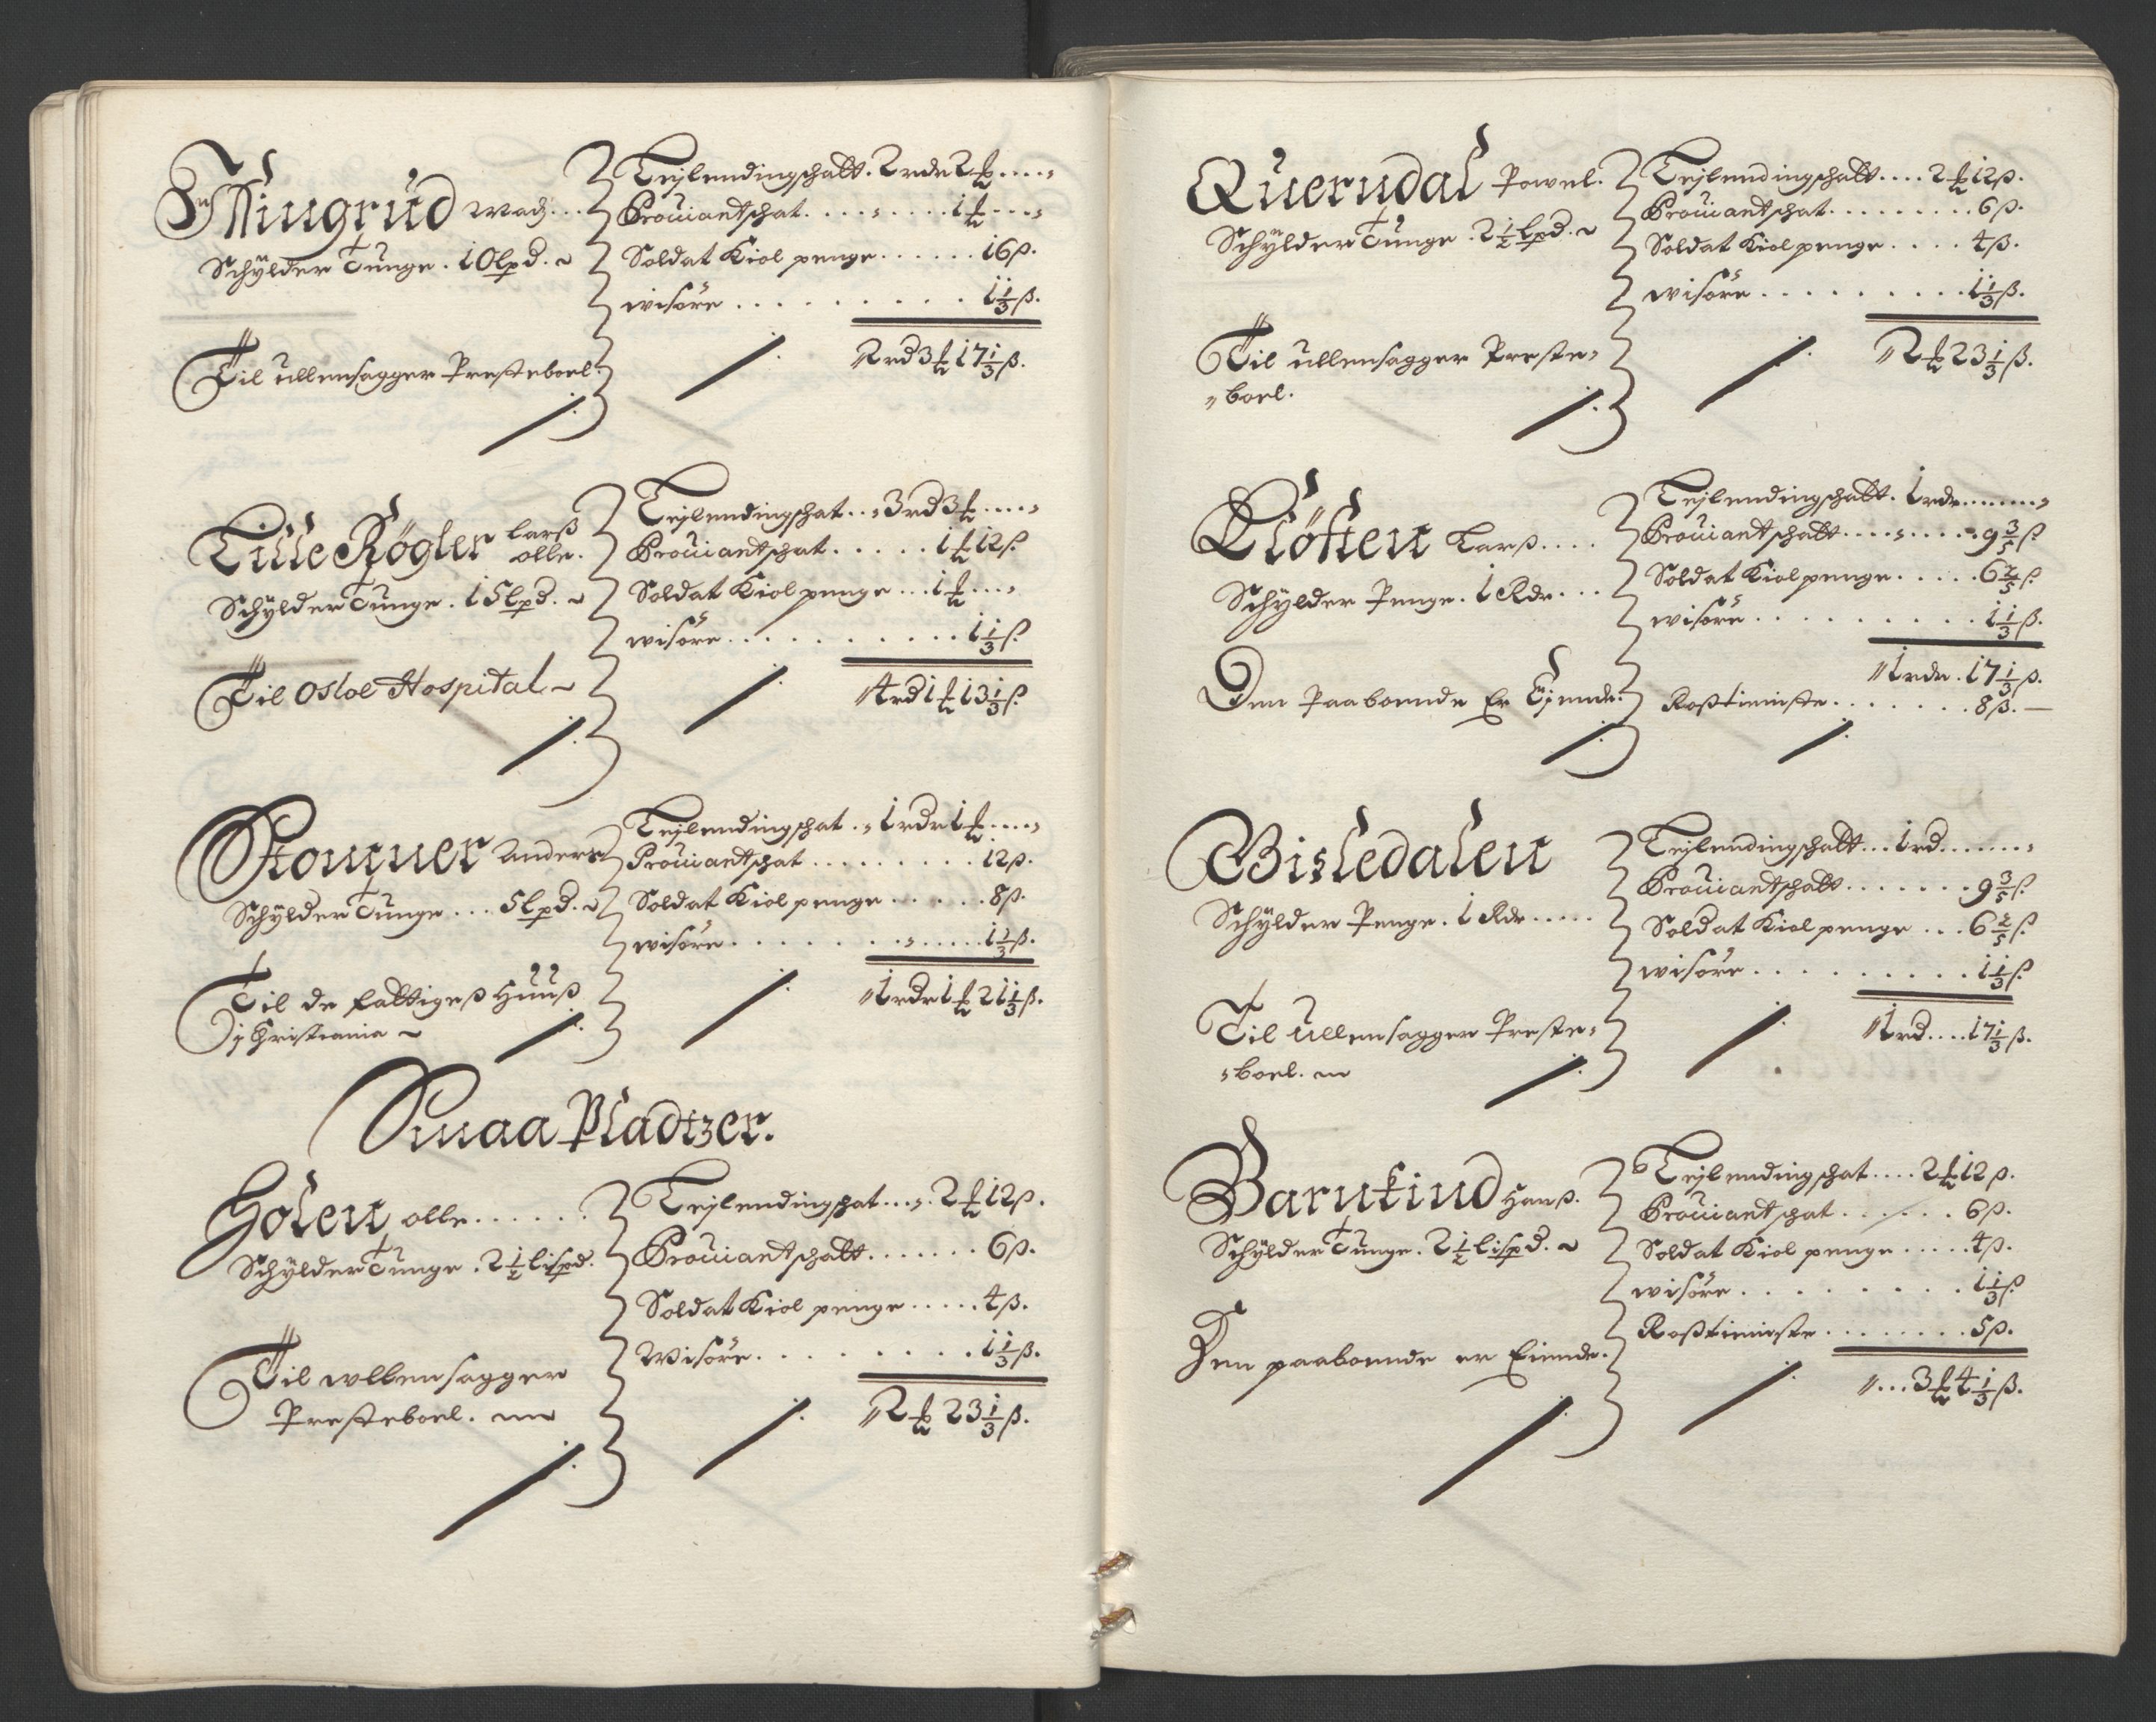 Mingrud Mads...
Schÿlder Tunge . 10 lpd. ~
Til ullensagger Presteboel.
Lejlendingschatt . 2 rdr 2 ort ....
Prouiantschat . . . . . . . 1 ort ....
Soldat Kiol penge . . . . . . 16 ß.
wisöre . . . . . . . . . 1 1/3 ß.
2 rd 3 ort 17 1/3 ß.
Lille Røgler Larß
olle.
Schÿlder Tunge . 15 lpd. ~
Til Osloe Hospital ~
Lejlendingschat . . 3 rd 3 ort ....
Prouiantschat . . . . . 1 ort 12 ß
Soldat Kiol penge ... 1 ort ...
wisöre . . . . . . . . . . 1 1/3 ß
4 rd 1 ort 13 1/3 ß
Anders
Schÿlder Tunge ... 5 lpd. ~
Til de fattigeß Huuß
j Christiania ~
Lejlendingschat . . 1 rdr 1 ort ....
Prouiantschat . . . . . . . . . 12 ß.
Soldat Kiol penge . . . . . 8 ß.
wisöre . . . . . . . . . . . 1 1/3 ß.
1 rdr 1 ort 21 1/3 ß.
Smaa Pladtzer.
Holen olle . . . . . .
Schÿlder Tunge . 2 1/2 lispd.
Til wllensagger
Presteboel.
Lejlendingschat .... 2 ort 12 ß.
Prouiantschatt . . . . . . . 6 ß.
Soldat Kiol penge . . . . . 4 ß.
Wisöre . . . . . . . . . 1 1/3 ß.
2 ort 23 1/3 ß.
Querndal Powel.
Schÿlder Tunge . 2 1/2 lpd. ~
Til ullensagger Preste-
boel.
Lejlendingschatt .... 2 ort 12 ß.
Prouiantschat . . . . . . . . . 6 ß.
Soldat Kiol penge . . . . 4 ß.
wisöre . . . . . . . . . 1 1/3 ß.
2 ort 23 1/3 ß.
Kløften Larß....
Schÿlder Penge . 1 Rdr ...
Den Paaboende Er Ejende.
Lejlendingschatt . 1 rdr .......
Prouiantschatt . . . . . . . 9 3/5 ß
Soldat Kiol penge . . . . . 6 2/5 ß
wisöre . . . . . . . . . 1 1/3 ß.
1 rdr . 17 1/3 ß.
Roßtieniste . . . . . . . 8 ß. —
Bisledalen
Schÿlder Penge . 1 Rdr .....
Til Ullensagger Preste-
boel.
Lejlendingschatt ... 1 rd .......
Prouiantschatt . . . . . . . 9 3/5 ß
Soldat Kiol penge . . . 6 2/5 ß
wisöre . . . . . . . . . 1 1/3 ß
1 rd .... 17 1/3 ß.
Barnkind Hanß.
Schÿlder Tunge . 2 1/2 lispd. ~
Den paaboende er Eiende.
Lejlendingschat .... 2 ort 12 ß.
Prouiantschat . . . . . . 6 ß.
Soldat Kiol penge ..... 4 ß.
wisöre . . . . . . . . . 1 1/3 ß
Roßtieniste . . . . . . . . 5 ß.
... 3 ort 4 1/3 ß.